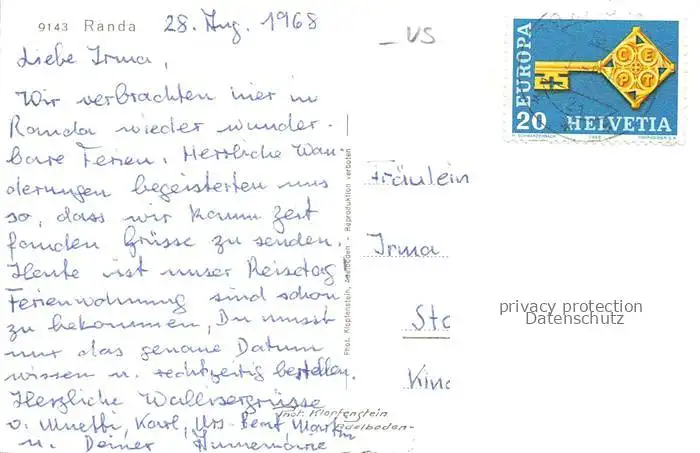 9143 Randa
28. Aug. 1968
Liebe Irma,
Wir verbrachten hier in
Randa wieder wunder-
bare Ferien. Herrliche Wan-
derungen begeisterten uns
so, dass wir kaum Zeit
fanden Grüsse zu senden.
Heute ist unser Reisetag
Ferienwohnung sind schon
zu bekommen, Du musst
nur das genaue Datum
wissen u. rechtzeitig bestellen.
Herzliche Wallisergrüsse
v. Karl, Urs, Bernt Martin
u. Deiner Annemarie
Phot. Klopfenstein, Adelboden - Reproduktion verboten
Phot. Klopfenstein
Adelboden
VS
EUROPA
CEPT
20 HELVETIA
Fräulein
Irma
Sta
Kind
privacy protection
Datenschutz